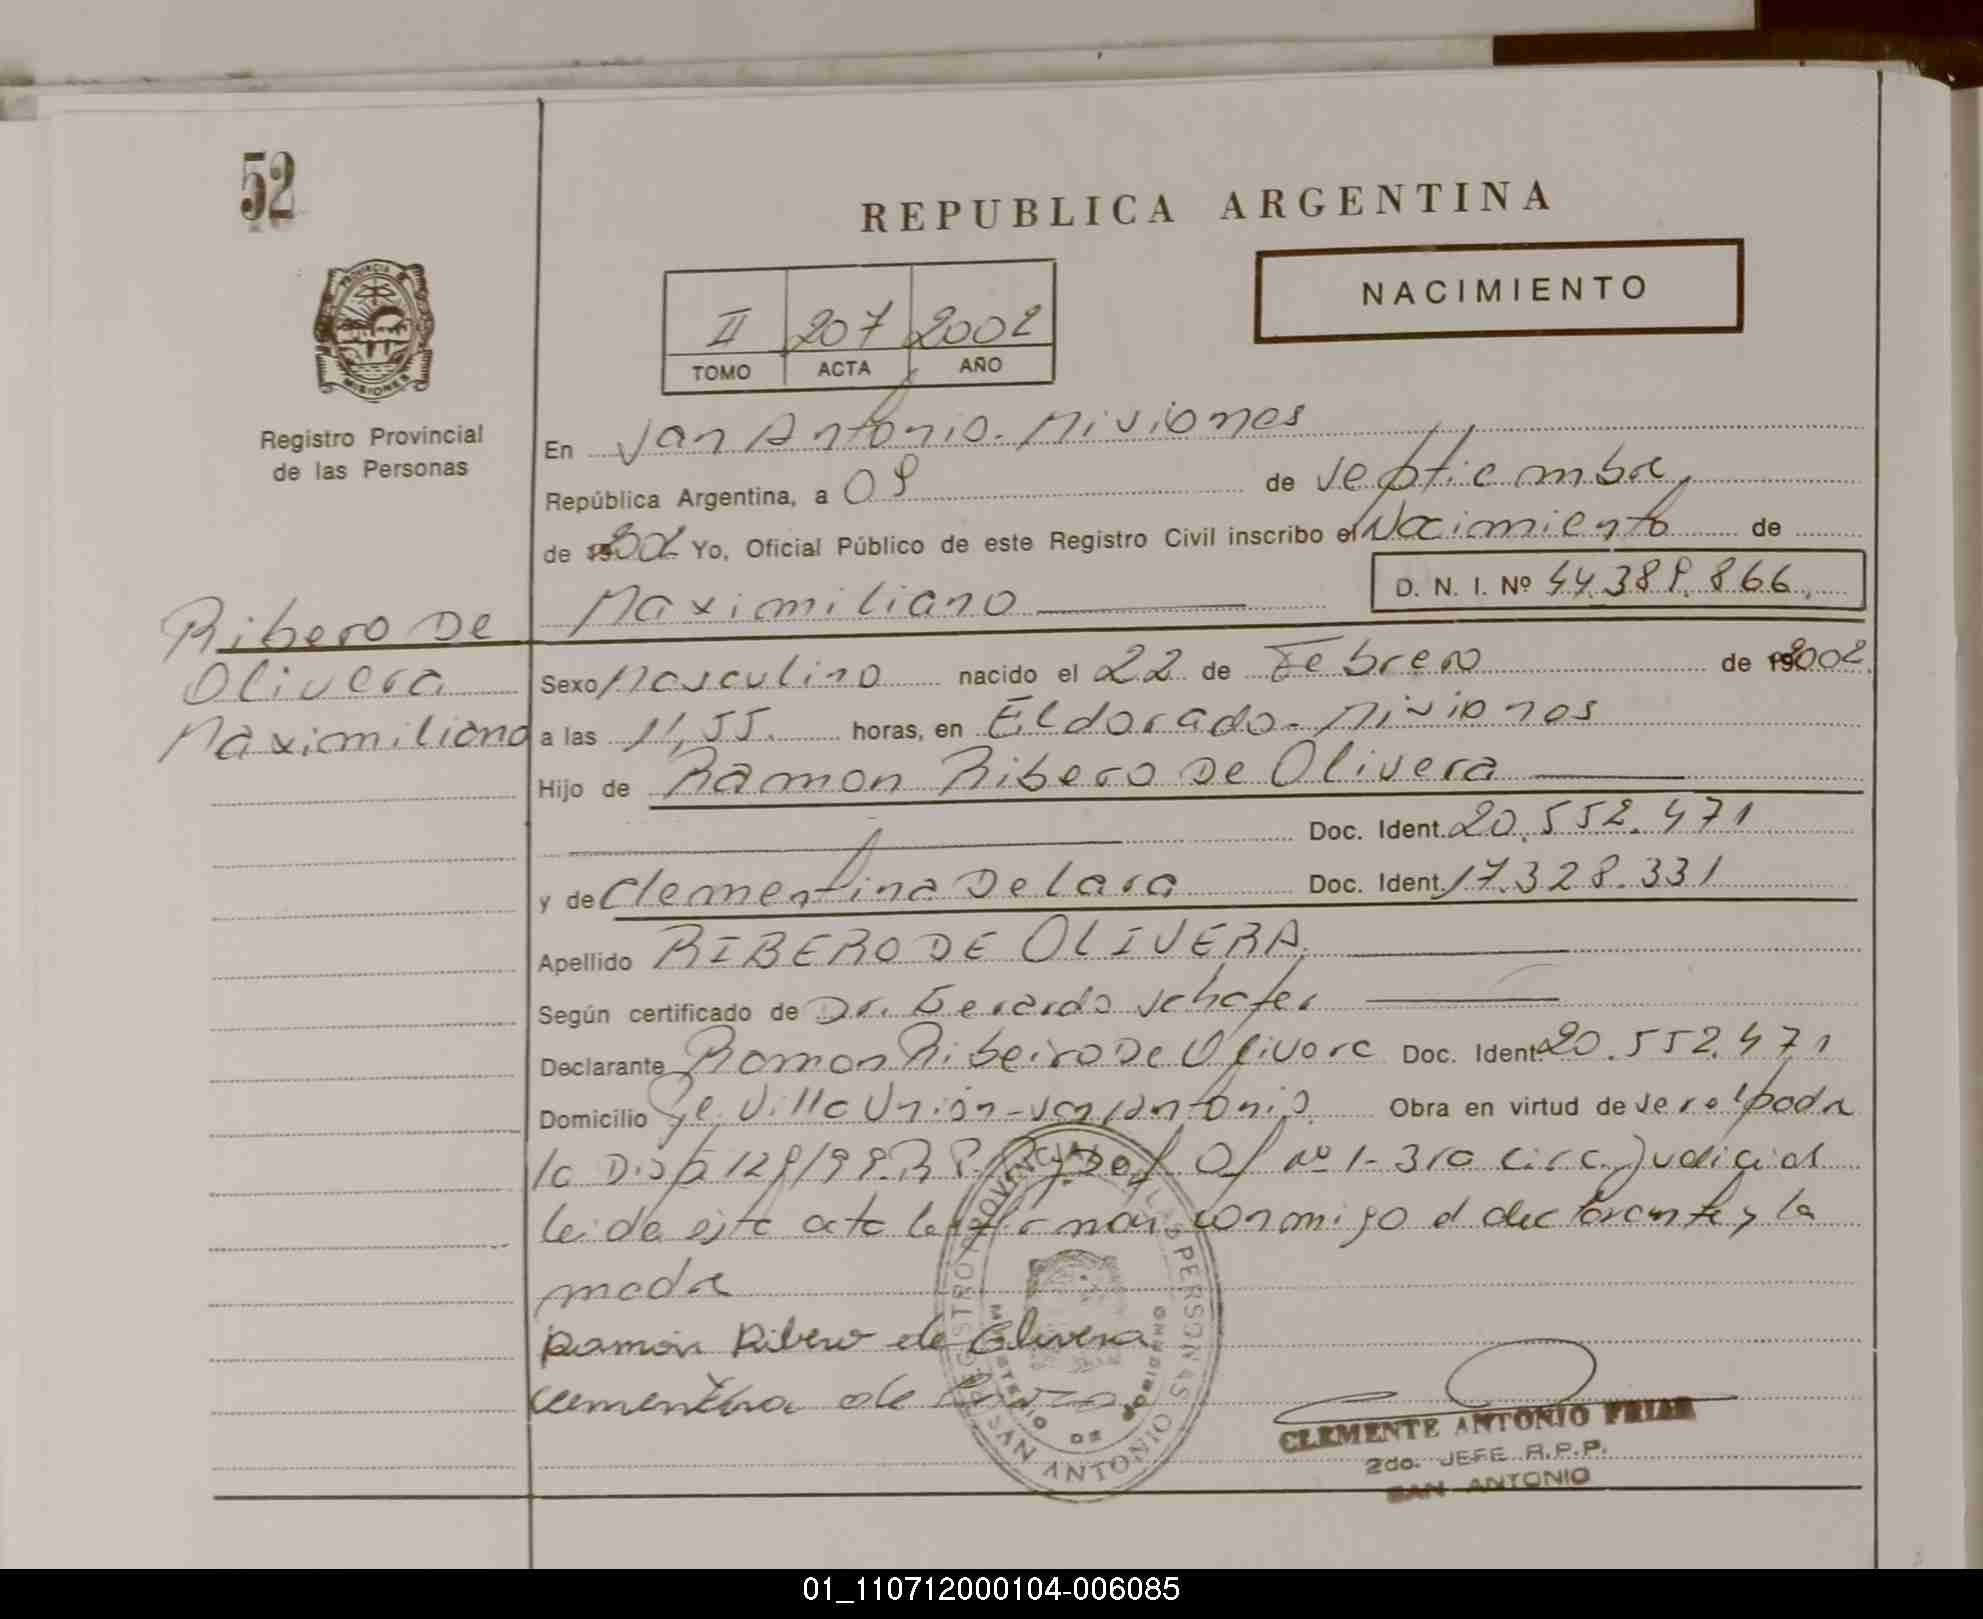 52
REPUBLICA ARGENTINA
NACIMIENTO
II 207 2002
TOMO ACTA AÑO
PROVINCIA DE
MISIONES
Registro Provincial
de las Personas
En San Antonio - Misiones
República Argentina, a 09 de Septiembre
de 2002 Yo, Oficial Público de este Registro Civil inscribo el Nacimiento de
Maximiliano D. N. I. Nº 44.389.866
Ribero De
Olivera
Maximiliano
Sexo Masculino nacido el 22 de Febrero de 2002
a las 11,55 horas, en Eldorado - Misiones
Hijo de Ramon Ribero De Olivera
Doc. Ident. 20.552.471
y de Clementina De Lara Doc. Ident. 17.328.331
Apellido RIBERO DE OLIVERA
Según certificado de Dr. Gerardo Schafer
Declarante Ramon Ribeiro De Olivera Doc. Ident. 20.552.471
Domicilio Villa Union - San Antonio Obra en virtud de ser el padre
la Disp 129/99 R.P.P. Def Of nº 1 - 3ra Circ. Judicial
leida esta acta la firman conmigo el declarante y la
madre
Ramón Ribero de Olivera
Clementina de
REGISTRO PROVINCIAL DE LAS PERSONAS
MINISTERIO DE GOBIERNO
SAN ANTONIO
CLEMENTE ANTONIO FRIAR
2do. JEFE R.P.P.
SAN ANTONIO
01_110712000104-006085